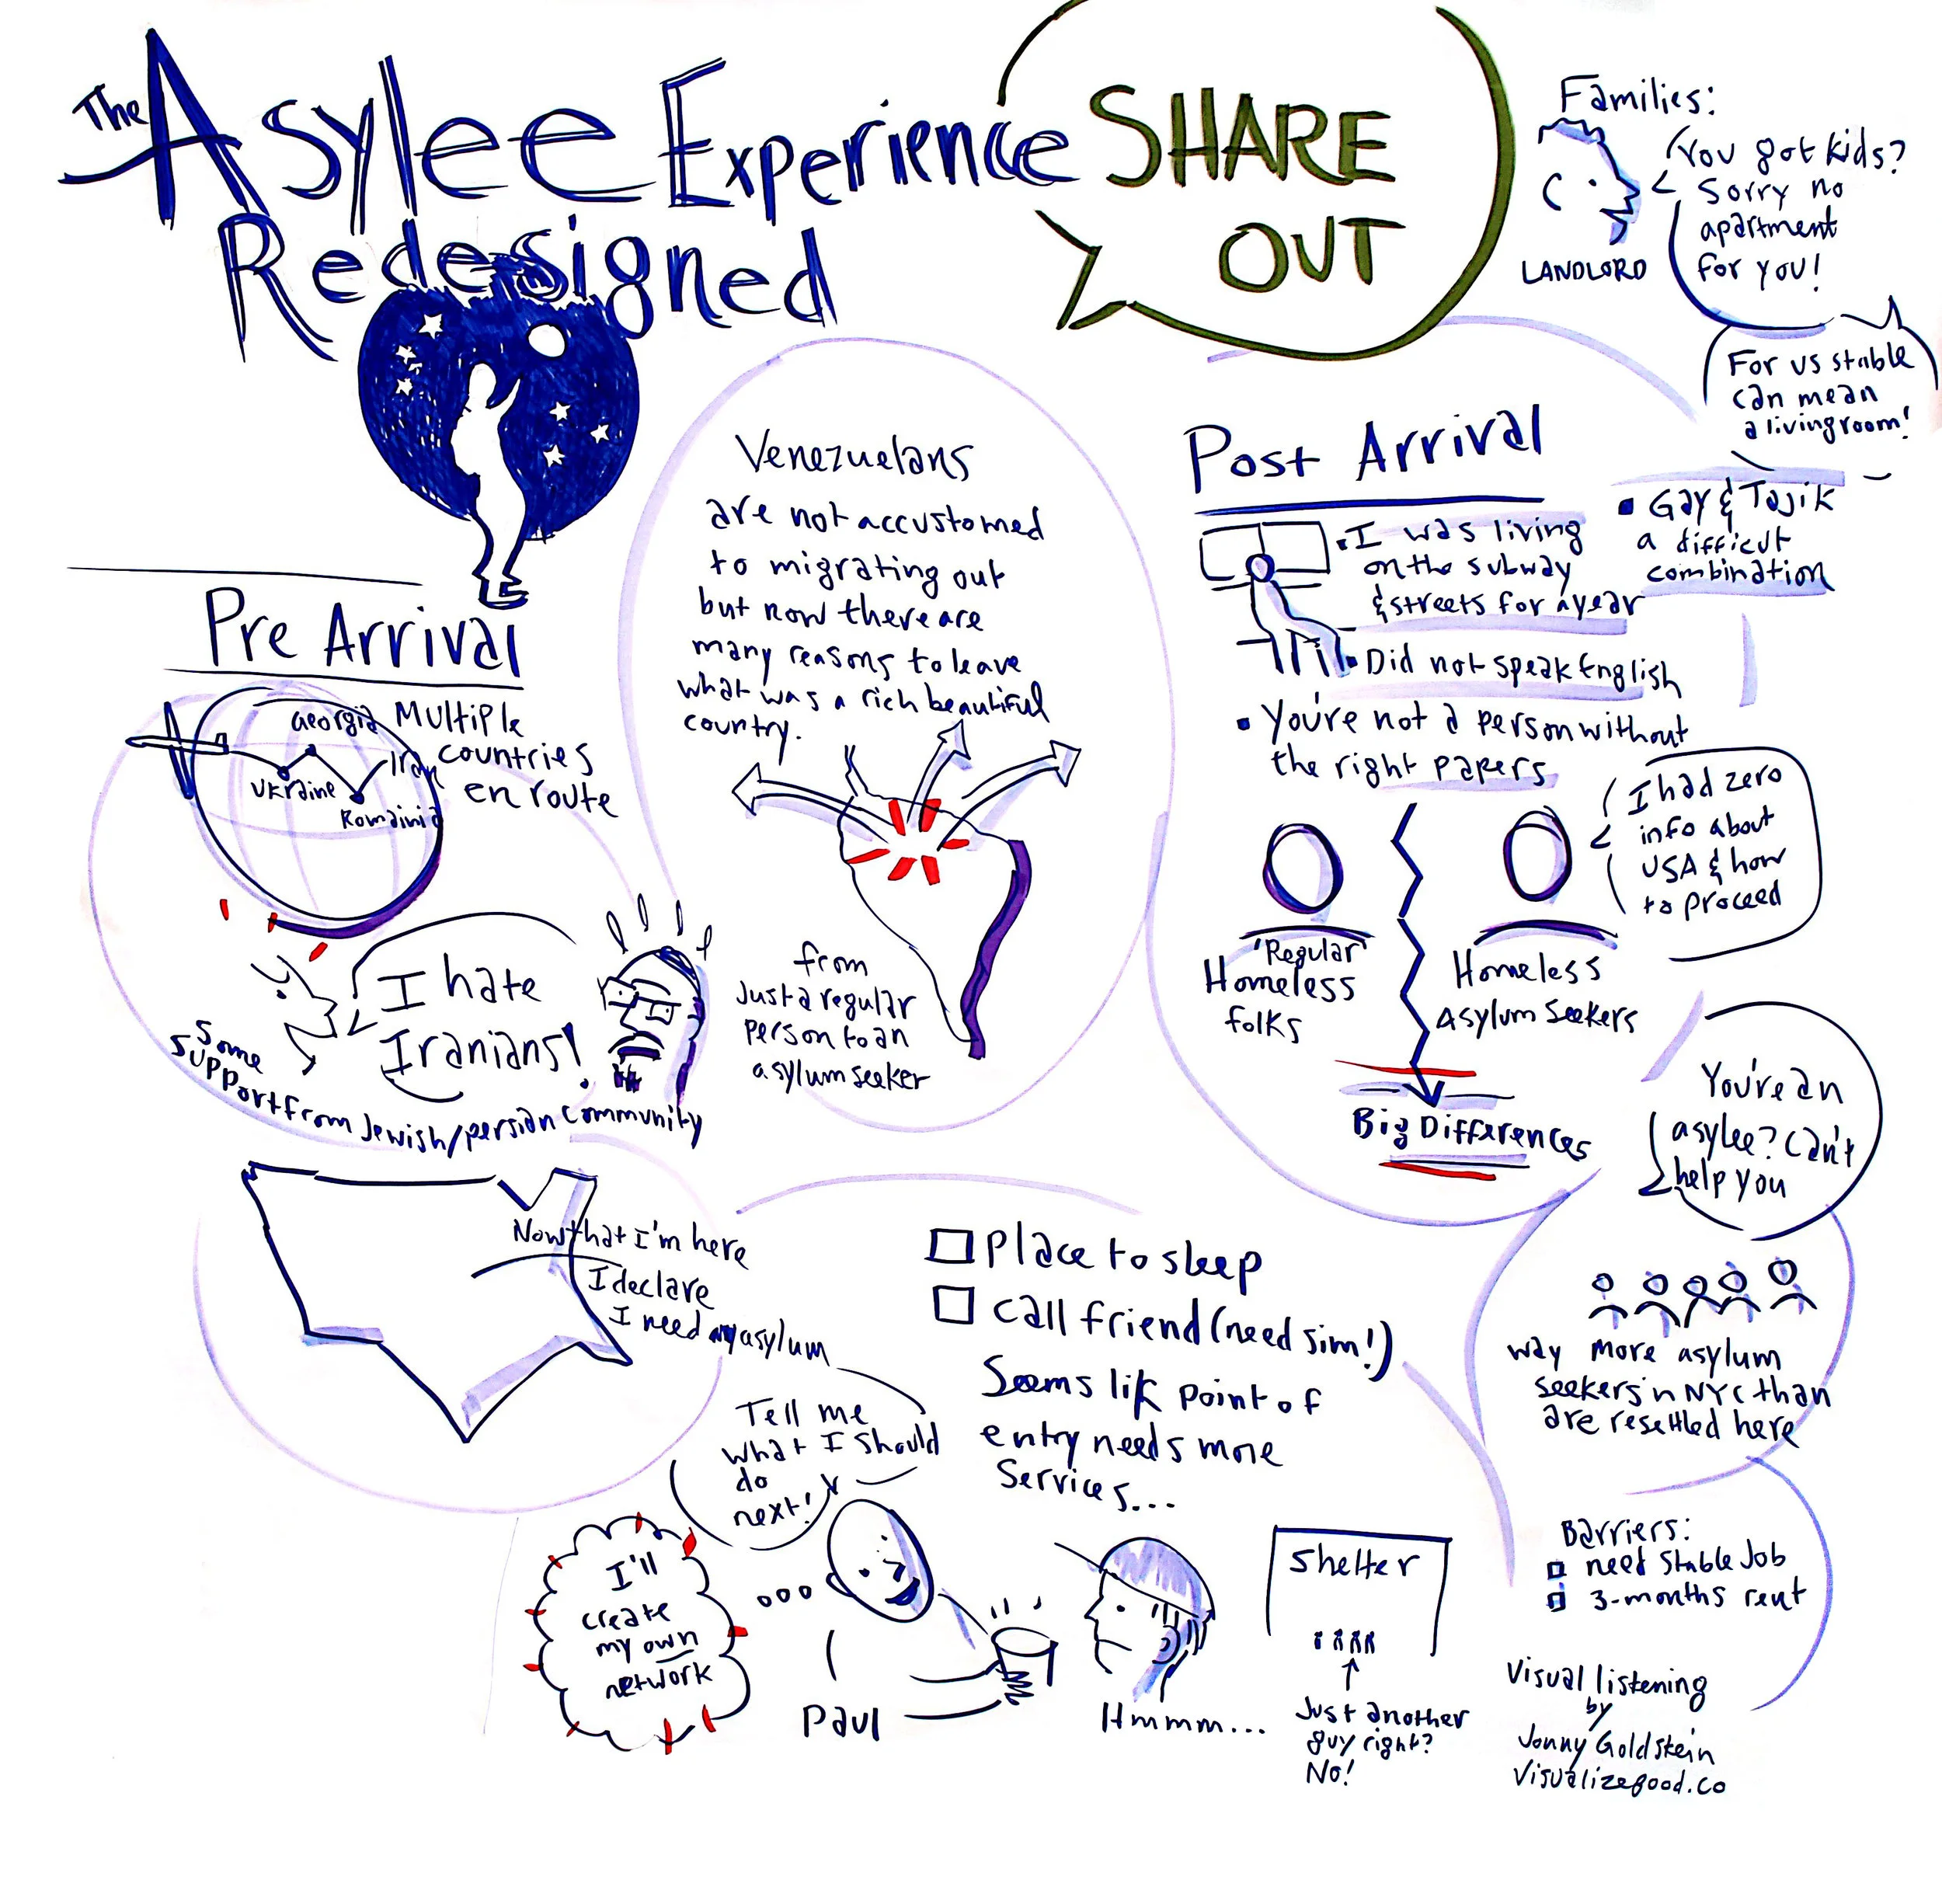 The Asylee Experience
Redesigned
SHARE
OUT
Families:
You got kids?
Sorry no
apartment
for you!
LANDLORD
For us stable
can mean
a livingroom!
Pre Arrival
Multiple
countries
en route
Georgia
Iran
Ukraine
Romainia
I hate
Iranians!
Some
support from Jewish/persian community
Venezuelans
are not accustomed
to migrating out
but now there are
many reasons to leave
what was a rich beautiful
country.
from
Just a regular
person to an
asylum seeker
Post Arrival
I was living
on the subway
& streets for a year
Gay & Tajik
a difficut
combination
Did not speak English
You're not a person without
the right papers
I had zero
info about
USA & how
to proceed
"Regular"
Homeless
folks
Homeless
Asylum Seekers
Big Differences
You're an
asylee? Can't
help you
way more asylum
seekers in NYC than
are resettled here
Now that I'm here
I declare
I need asylum
Place to sleep
call friend (need sim!)
Seems lik point of
entry needs more
Services...
Tell me
what I should
do
next!
I'll
create
my own
network
Paul
Hmmm...
Shelter
Just another
guy right?
No!
Barriers:
need Stable Job
3-months rent
Visual listening
by
Jonny Goldstein
Visualizegood.co